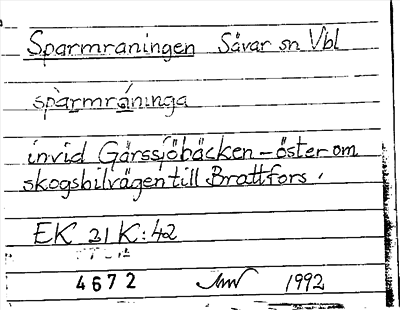 Sparmraningen Sävar sn Vbl
sparmråninga
invid Gärssjöbäcken - öster om
skogsbilvägen till Brattfors.
EK 21 K: 42
4672 1992